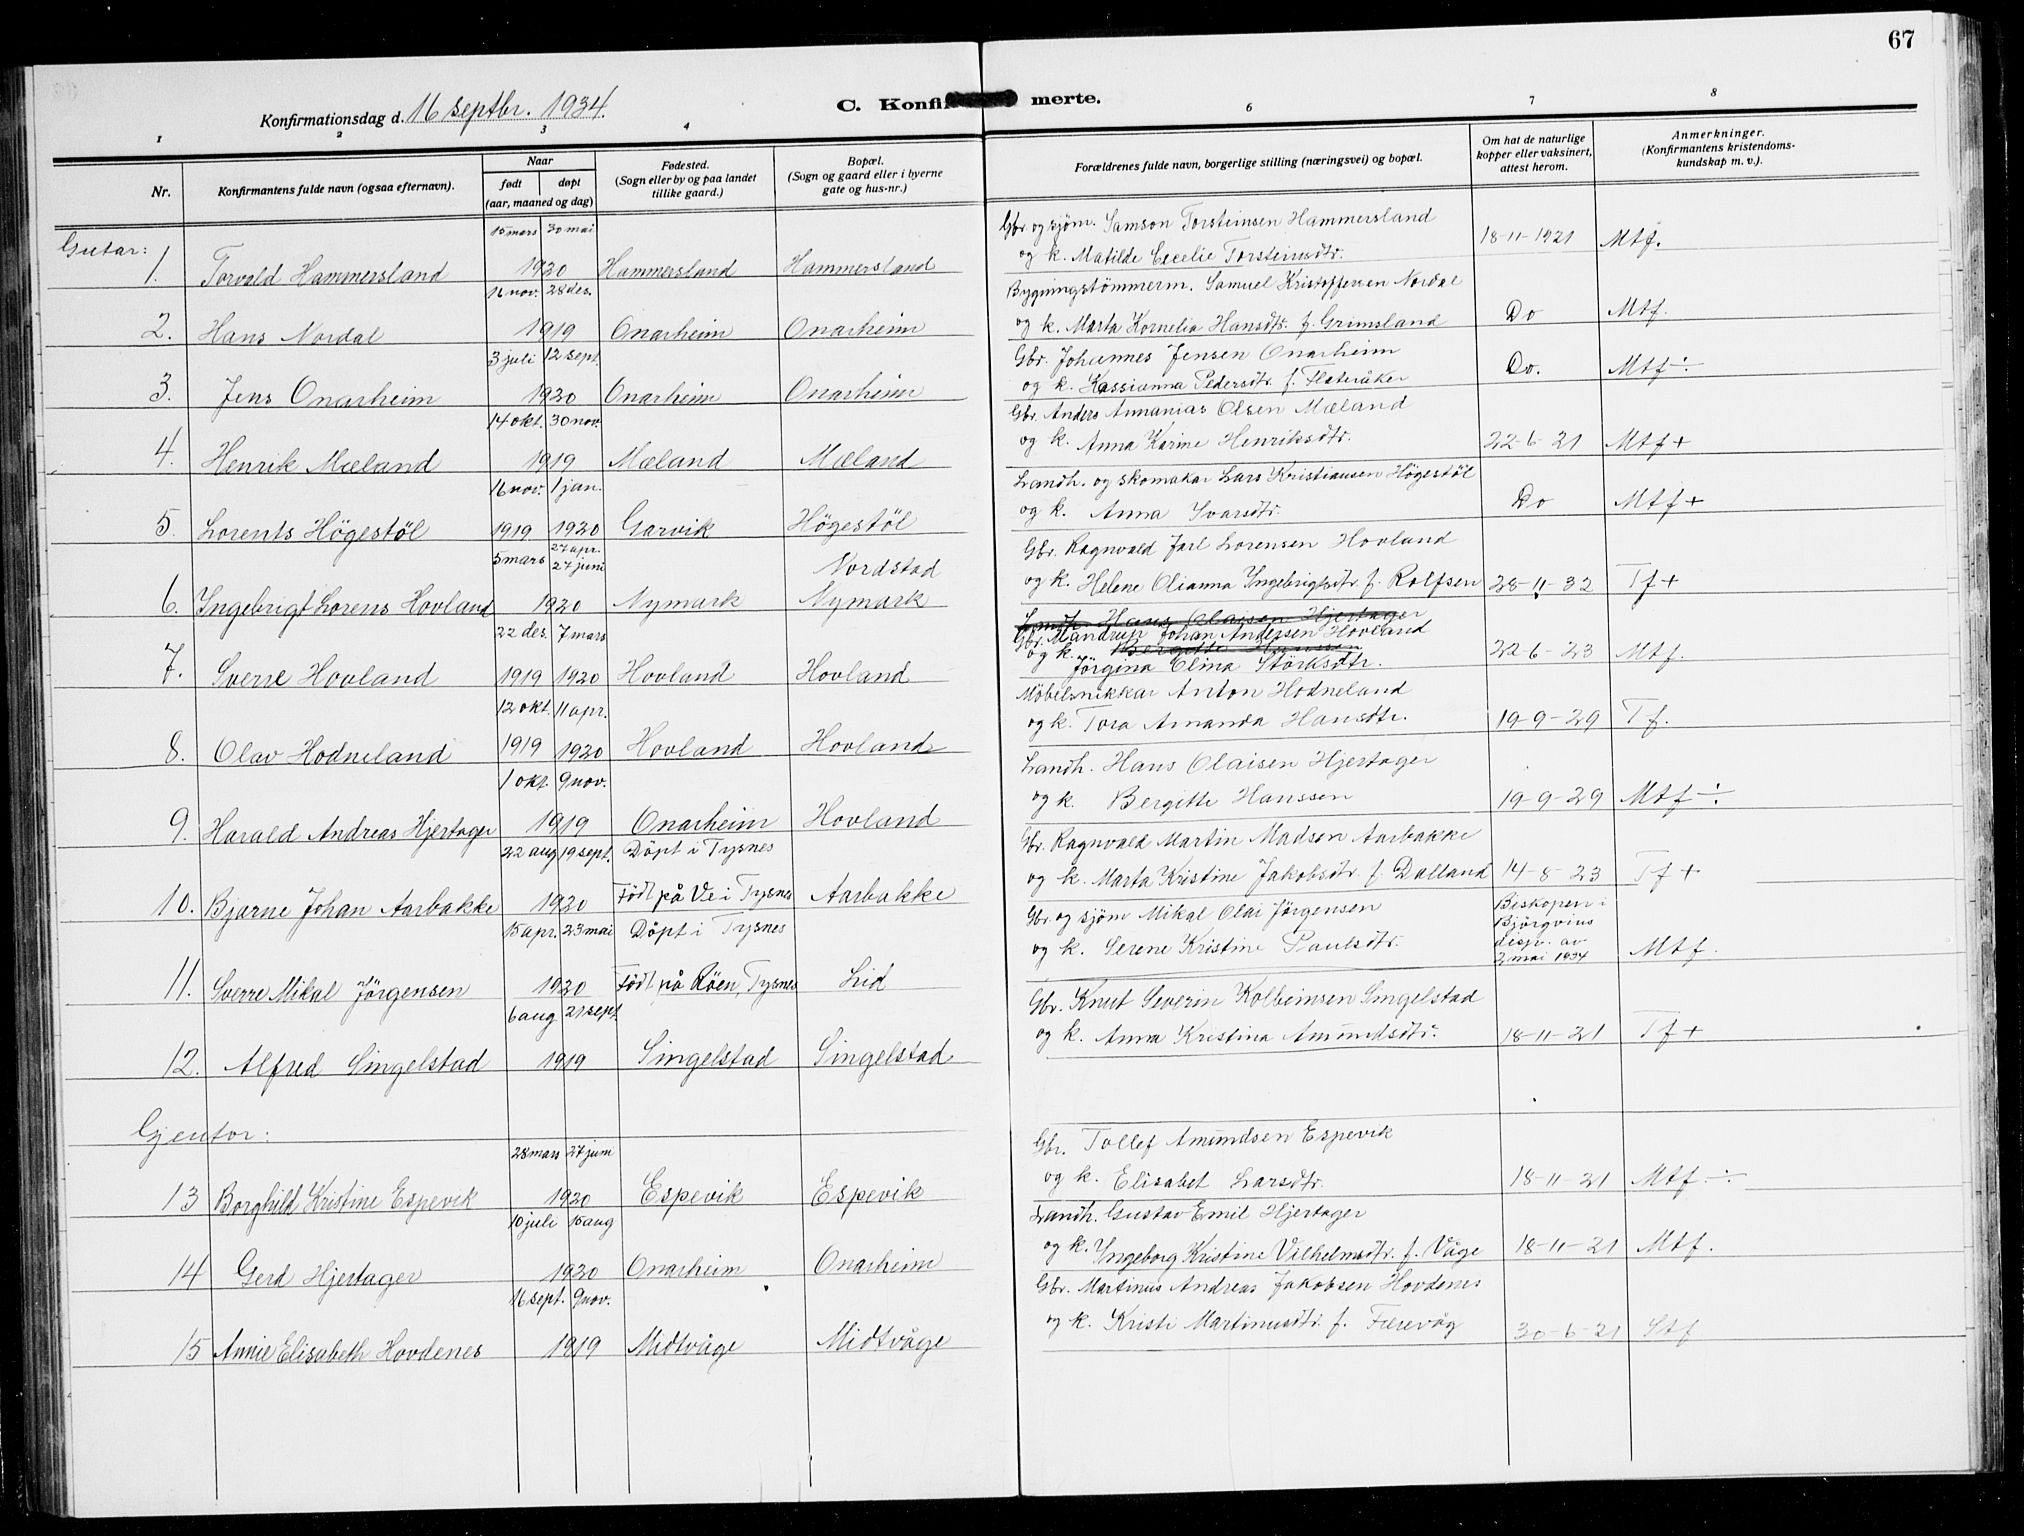 67
Konfirmationsdag d. 16 septbr. 1934.
C. Konfir merte.
1 2 3 4 6 7 8
Nr. Konfirmantens fulde navn (ogsaa efternavn). Naar født døpt (aar, maaned og dag) Fødested. (Sogn eller by og paa landet tillike gaard.) Bopæl. (Sogn og gaard eller i byerne gate og hus-nr.) Forældrenes fulde navn, borgerlige stilling (næringsvei) og bopæl. Om hat de naturlige kopper eller vaksinert, attest herom. Anmerkninger. (Konfirmantens kristendoms-kundskap m. v.).
Gutar:
15 mars 30 mai Gbr og sjøm. Samson Torsteinsen Hammersland
1. Torvald Hammersland 1920 Hammersland Hammersland og k. Matilde Cecelie Torsteinsdtr. 18-11-1921 Mtf.
16 nov. 28 des. Bygningstømmerm. Samuel Kristoffersen Nordal
2. Hans Nordal 1919 Onarheim Onarheim og k. Marta Kornelia Hansdtr. f. Grimsland Do Mtf.
3 juli 12 sept. Gbr. Johannes Jensen Onarheim
3. Jens Onarheim 1920 Onarheim Onarheim og k. Kassianna Pedersdtr. f. Flateråker Do. Mtf÷
14 okt. 30 nov. Gbr. Anders Annanias Olsen Mæland
4. Henrik Mæland 1919 Mæland Mæland og k. Anna Karine Henriksdtr. 22-6-21 Mtf+
16 nov. 1 jan. Landh. og skomakar Lars Kristiansen Högestöl
5. Lorents Högestöl 1919 1920 Garvik Högestöl og k. Anna Ivarsdtr. Do Mtf+
5 mars 27 apr. 27 juni Nordstad Gbr. Ragnvald Jarl Lorensen Hovland
6. Ingebrigt Lorens Hovland 1920 Nymark Nymark og k. Helene Olianna Ingebrigtsdtr. f. Rolfsen 28-11-32 Tf+
Landh. Hans Olaisen Hjertager
22 des. 7 mars Gbr. Mandrup Johan Andersen Hovland
og k. Bergitte Hanssen
7. Sverre Hovland 1919 1920 Hovland Hovland Jörgina Elina Störksdtr. 22-6-23 Mtf.
12 okt. 11 apr. Möbelsnikkar Anton Hodneland
8. Olav Hodneland 1919 1920 Hovland Hovland og k. Tora Amanda Hansdtr. 19-9-29 Tf.
1 okt. 9 nov. Landh. Hans Olaisen Hjertager
9. Harald Andreas Hjertager 1919 Onarheim Hovland og k. Bergitte Hanssen 19-9-29 Mtf÷
22 aug 19 sept. Döpt i Tysnes Gbr. Ragnvald Martin Madsen Aarbakke
10. Bjarne Johan Aarbakke 1920 Födt på Ve i Tysnes Aarbakke og k. Marta Kristine Jakobsdtr. f. Dalland 14-8-23 Tf+
15 apr. 23 mai Döpt i Tysnes Gbr og sjöm Mikal Olai Jörgensen Biskopen i Björgvius disp. av 2 mai 1934
11. Sverre Mikal Jörgensen 1920 Födt på Röen, Tysnes Lid og k. Serene Kristine Paulsdtr. Mtf.
6 aug 21 sept. Gbr. Knut Severin Kolbeinsen Singelstad
12. Alfred Singelstad 1919 Singelstad Singelstad og k. Anna Kristina Amundsdtr. 18-11-21 Tf+
Gjentor:
28 mars 27 juni Gbr. Tollef Amundsen Espevik
13 Borghild Kristine Espevik 1920 Espevik Espevik og k. Elisabet Larsdtr. 18-11-21 Mtf.÷
10 juli 15 aug Landh. Gustav Emil Hjertager
14 Gerd Hjertager 1920 Onarheim Onarheim og k. Ingeborg Kristine Vilhelmsdtr. f. Våge 18-11-21 Mtf.
16 sept. 9 nov. Gbr. Martinus Andreas Jakobsen Hovdenes
15 Annie Elisabeth Hovdenes 1919 Midtvåge Midtvåge og k. Kristi Martinusdtr. f. Færevåg 30-6-21 Stf